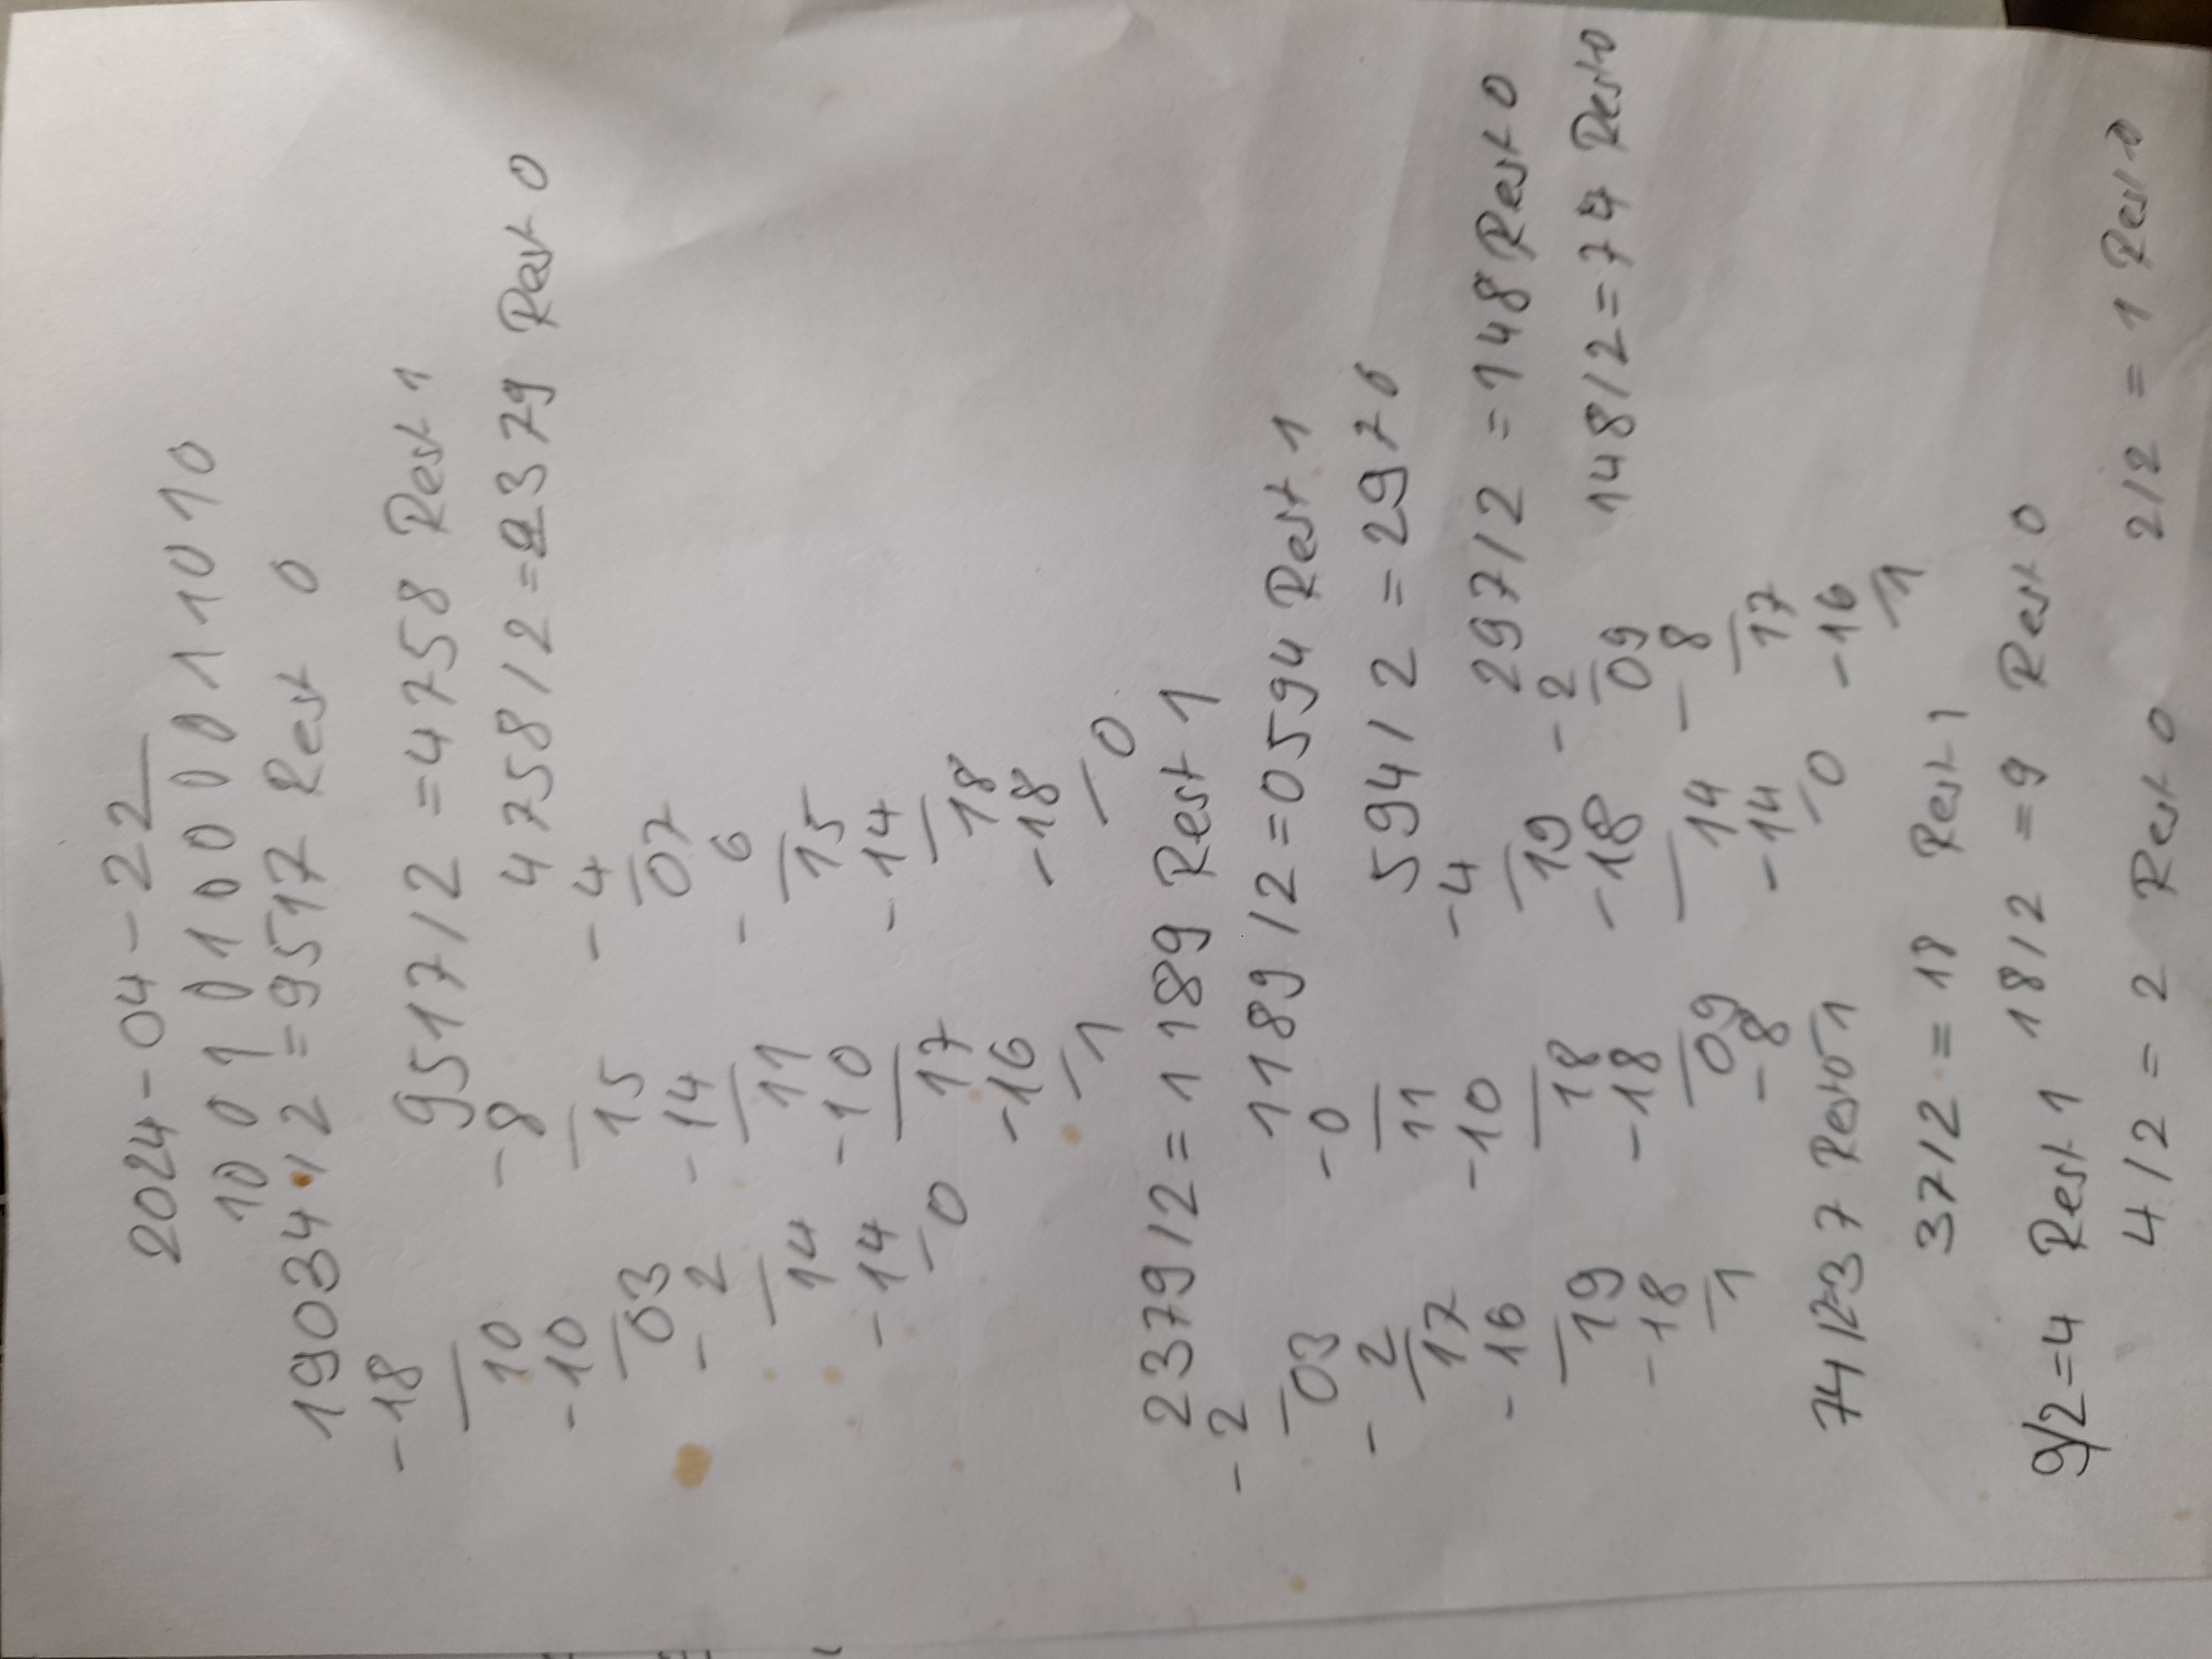 2024-04-22
10 0 1 0 1 0 0 0 0 1 1 0 1 0
19034/2=9517 Rest 0
-18
10
-10
03
- 2
14
-14
0
9517/2 =4758 Rest 1
-8
15
-14
11
-10
17
-16
1
4758/2=2379 Rest 0
-4
07
- 6
15
-14
18
-18
0
2379/2=1189 Rest 1
-2
03
- 2
17
-16
19
-18
1
1189/2=0594 Rest 1
-0
11
-10
18
-18
09
-8
1
594/2 =297
-4
19
-18
14
-14
0
297/2 =148 Rest 0
-2
09
- 8
17
-16
1
148/2=74 Rest 0
74/2=37 Rest
37/2=18 Rest 1
18/2=9 Rest 0
9/2=4 Rest 1
4/2=2 Rest 0
2/2=1 Rest